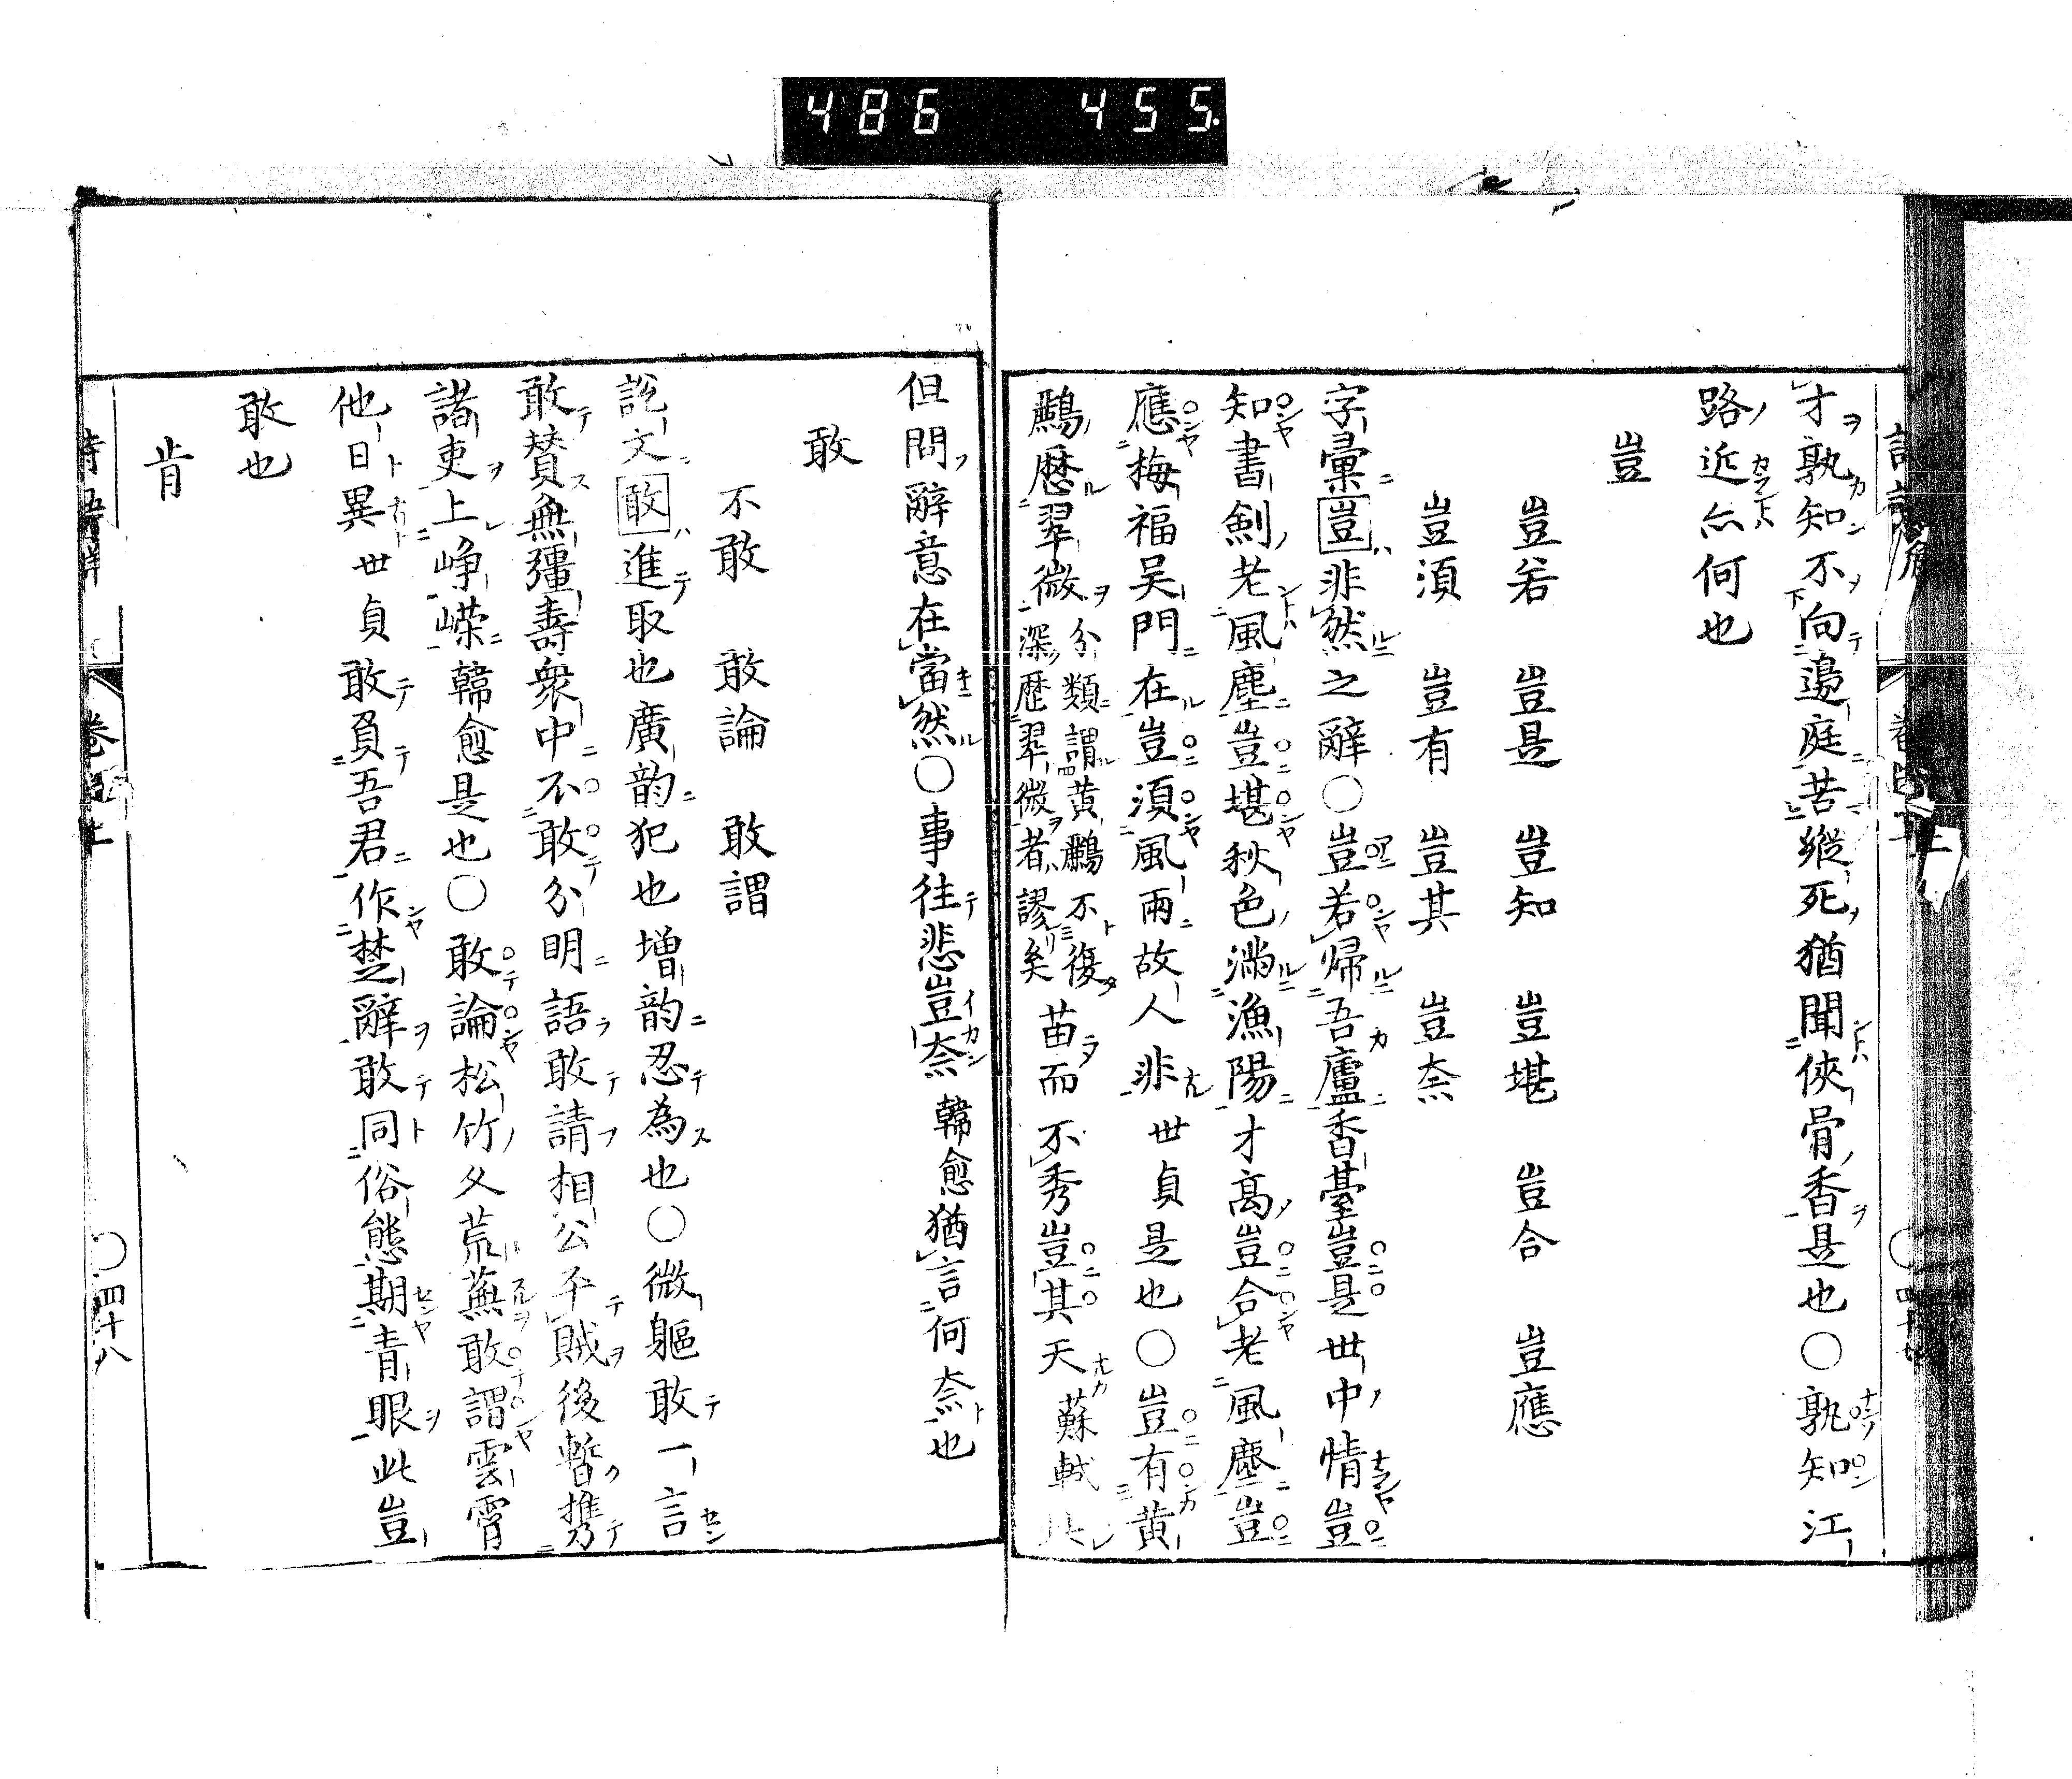 486 455.
才孰知不向邉庭苦縱死猶聞俠骨香是也〇孰知江
路近亽何也
豈
豈若 豈是 豈知 豈堪 豈合 豈應
豈須 豈有 豈其 豈奈
字彙豈非然之辭〇豈若歸吾廬香臺豈是世中情豈
知書劍老風塵豈堪秋色滿漁陽才髙豈合老風塵豈
應梅福吴門在豈須風雨故人非世貞是也〇豈有黄
鸝歴翠微分類謂黄鸝不復深歴翠微者謬矣苗而不秀豈其天蘇軾此
但問辭意在當然〇事往悲豈奈韓愈猶言何奈也
敢
不敢 敢論 敢謂
説文敢進取也廣韵犯也増韵忍為也〇微軀敢一言
敢賛無彊壽衆中不敢分明語敢請相公平賊後暫携
諸吏上崢嶸韓愈是也〇敢論松竹久荒蕪敢謂雲霄
他日異世貞敢負吾君作楚辭敢同俗態期青眼此豈
敢也
肯
卷四上
〇四十八